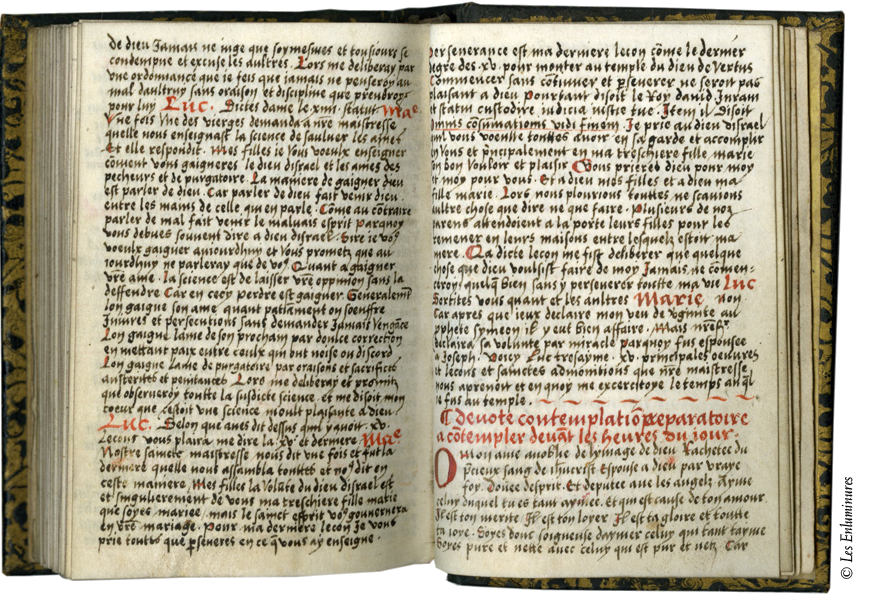 de dieu Jamais ne iuge que soymesmes et tousiours se
condempne et excuse les aultres. Lors me deliberay par
vne ordonnance que ie feis que jamais ne penseroy au
mal daultruy sans oraison et discipline que prendroys
pour luy Luc. Dictes dame le xiiii. statut Mae
Vne fois Vne des vierges demanda a nr̄e maistresse
quelle nous enseignast la science de saulver les ames
Et elle respondit. Mes filles ie Vous voeulx enseigner
cōment vous gaigneres le dieu disrael et les ames des
pecheurs et de purgatoire. La maniere de gaigner dieu
est parler de dieu. Car parler de dieu fait venir dieu
entre les mains de celle qui en parle. Cōme au cōtraire
parler de mal fait venir le maluais esprit parquoy
vous debues souvent dire a dieu disrael. Sire ie vo9
voeulx gaigner aujourdhuy et Vous promets que au
iourdhuy ne parleray que de vo9 Quant a gaigner
vr̄e ame. la science est de laisser vr̄e oppinion sans la
deffendre Car en cecy perdre est gaigner Generalemt
lon gaigne son ame quant patiamēt on soeuffre
Iniures et persecutions sans demander Jamais Vengāce
Lon gaigne lame de son prochain par doulce correction
en mettant paix entre ceulx qui ont noise ou discord
Lon gaigne lame de purgatoire par oraisons et sacrifices
austeritēs et penitances Lors me deliberay et promitz
que observeroy toutte la susdicte science. et me disoit mon
coeur que cestoit vne science moult plaisante a dieu
Luc. Selon que aues dit dessus qui y avoit .xv.
Lecons vous plaira me dire la .xv. et derniere Mae
Nostre saincte maistresse nous dit vne fois et fut la
derniere quelle nous assembla touttes et no9 dit en
ceste maniere. Mes filles la Volūte du dieu disrael est
et singulierement de vous ma treschiere fille marie
que soyes mariee. mais le sainct esprit vo9 gouvernera
en vr̄e mariage. Pour ma derniere lecon Je vous
prie touttes que p̄severes en ce q̄ vous ay enseigne.
perseverance est ma derniere lecon cōme le dernier
degre des .xv. pour monter au temple du dieu de Vertus
Commencer sans cōtinuer et p̄severer ne seroit pas
plaisant a dieu Pourtant disoit le Roy david Iuravi
et statui custodire iudicia iustitie tue. Item il disoit
Omnis cōsumationis vidi finem. Je prie au dieu disrael
quil vous voeulle touttes avoir en sa garde et accomplir
en Vous et p̄ncipalement en ma treschiere fille marie
son bon Vouloir et plaisir Vous prieres dieu pour moy
et moy pour vous. Et a dieu mes filles et a dieu ma
fille marie. Lors nous plourions touttes ne scavions
aultre chose que dire ne que faire. Plusieurs de noz
parens attendoient a la porte leurs filles pour les
remener en leurs maisons entre lesquelz estoit ma
mere. La dicte lecon me fist deliberer que quelque
chose que dieu voulsist faire de moy Jamais ne comen-
ceroy quelq̄ bien sans y perseverer toutte ma vie Luc
Sortites vous quant et les aultres Marie non
Car apres que ieux declaire mon veu de v̄ginite au
pphete symeon il y eut bien affaire. Mais nr̄e sr
declaira sa volunte par miracle parquoy fus espousee
a Joseph. Voicy Luc tresayme .xv. principales oeuvres
et lecons et sainctes admonitions que nr̄e maistresse
nous aprenoit et en quoy me exercitoye le temps auq̄l
je fus au temple.
Devote contemplatiō preparatoire
a cōtempler devāt les heures du jour.
O mon ame anoblie de lymage de dieu Rachetee du
p̄cieux sang de ihucrist Espouse a dieu par vraye
foy. Douee desprit. Et deputee avec les angelz Ayme
celuy duquel tu es tant aymee. Et quest cause de ton amour.
Il est ton merite Il est ton loyer Il est ta gloire et toutte
ta ioye. Soyes donc soigneuse daymer celuy qui tant tayme
Soyes pure et nette avec celuy qui est pur et netz Car
© Les Enluminures